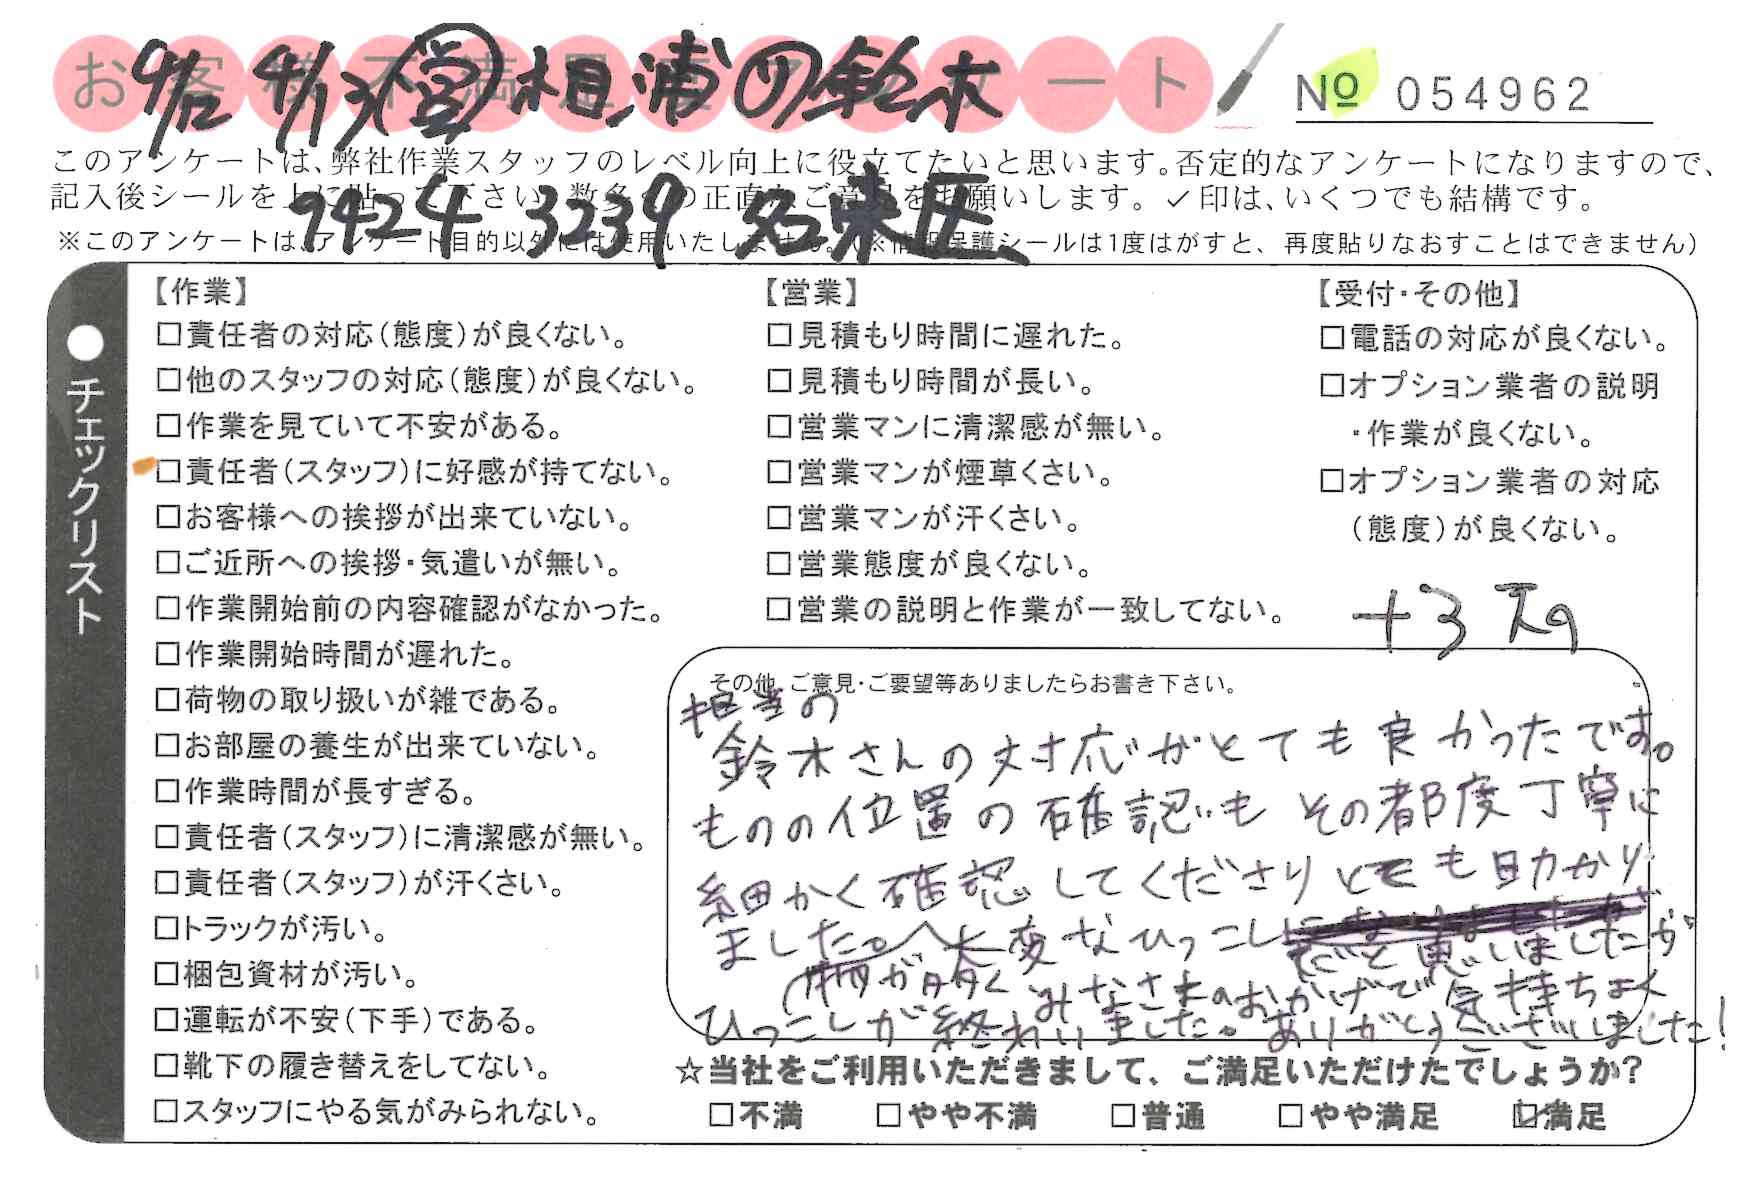 お客様不満足度アンケート
9/12 4/13 営 相浦 リ 鈴木
№ 054962
このアンケートは、弊社作業スタッフのレベル向上に役立てたいと思います。否定的なアンケートになりますので、
記入後シールを上に貼って下さい。数多くの正直なご意見をお願いします。✓印は、いくつでも結構です。
9424 3239 名東区
※このアンケートは、アンケート目的以外には使用いたしません。(※情報保護シールは1度はがすと、再度貼りなおすことはできません)
●チェックリスト
【作業】
□責任者の対応(態度)が良くない。
□他のスタッフの対応(態度)が良くない。
□作業を見ていて不安がある。
□責任者(スタッフ)に好感が持てない。
□お客様への挨拶が出来ていない。
□ご近所への挨拶・気遣いが無い。
□作業開始前の内容確認がなかった。
□作業開始時間が遅れた。
□荷物の取り扱いが雑である。
□お部屋の養生が出来ていない。
□作業時間が長すぎる。
□責任者(スタッフ)に清潔感が無い。
□責任者(スタッフ)が汗くさい。
□トラックが汚い。
□梱包資材が汚い。
□運転が不安(下手)である。
□靴下の履き替えをしてない。
□スタッフにやる気がみられない。
【営業】
□見積もり時間に遅れた。
□見積もり時間が長い。
□営業マンに清潔感が無い。
□営業マンが煙草くさい。
□営業マンが汗くさい。
□営業態度が良くない。
□営業の説明と作業が一致してない。
【受付・その他】
□電話の対応が良くない。
□オプション業者の説明
・作業が良くない。
□オプション業者の対応
(態度)が良くない。
+3
その他、ご意見・ご要望等ありましたらお書き下さい。
担当の
鈴木さんの対応がとても良かったです。
ものの位置の確認もその都度丁寧に
細かく確認してくださりとても助かり
ました。大変なひっこし
だと思いましたが
が多く みなさまのおかげで気持ちよく
ひっこしが終わいました。ありがとうございました!
☆当社をご利用いただきまして、ご満足いただけたでしょうか?
□不満 □やや不満 □普通 □やや満足 ☑満足